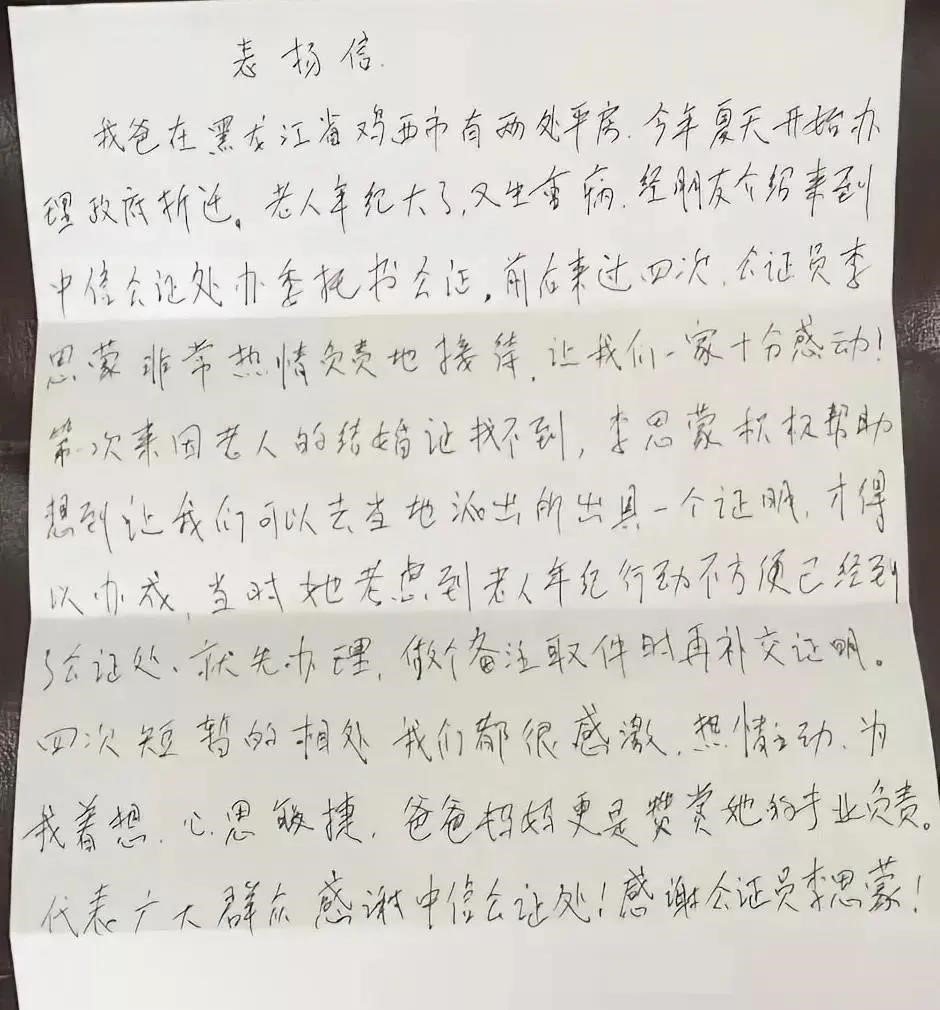 表扬信.
我爸在黑龙江省鸡西市有两处平房.今年夏天开始办
理政府折迁。老人年纪大了,又生重病.经朋友介绍来到
中信公证处办委托书公证,前后来过四次.公证员李
思蒙非常热情负责地接待,让我们一家十分感动!
第一次来因老人的结婚证找不到,李思蒙积极帮助
想到让我们可以去当地派出所出具一个证明,才得
以办成,当时她考虑到老人年纪行动不方便已经到
了公证处、就先办理,做个备注取件时再补交证明。
四次短暂的相处 我们都很感激.热情主动.为
我着想.心思敏捷.爸爸妈妈更是赞赏她的专业负责。
代表广大群众感谢中信公证处!感谢公证员李思蒙!